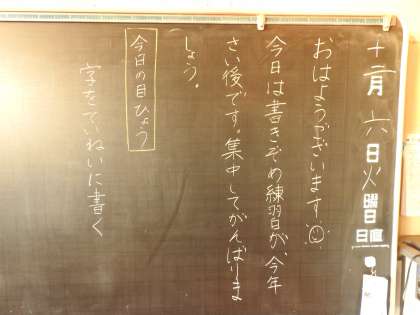 十二月六日火曜日
日直
おはようございます。
今日は書きぞめ練習日が、今年
さい後です。集中してがんばりま
しょう。
今日の目ひょう
字をていねいに書く